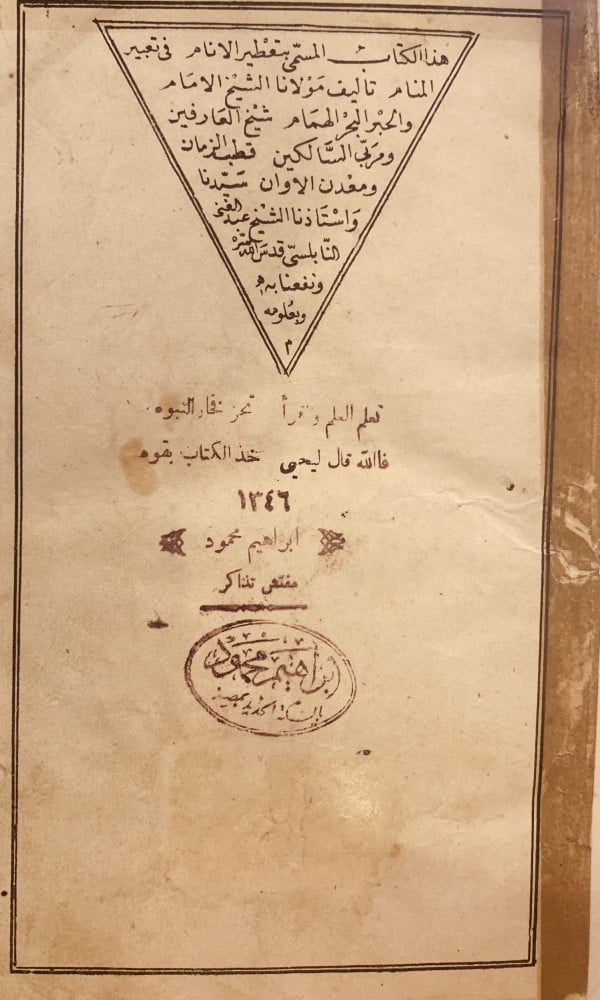 هذا الكتاب المسمى بتعطير الانام فى تعبير
المنام تأليف مولانا الشيخ الامام
والحبر البحر الهمام شيخ العارفين
ومربى السالكين قطب الزمان
ومعدن الاوان سيدنا
واستاذنا الشيخ عبد الغنى
النابلسى قدس الله سره
ونفعنا به
وبعلومه
م
تعلم العلم وقرأ تحز فخار النبوه
فالله قال ليحيى خذ الكتاب بقوه
١٣٤٦
ابراهيم محمود
مفتش تذاكر
ابراهيم محمود